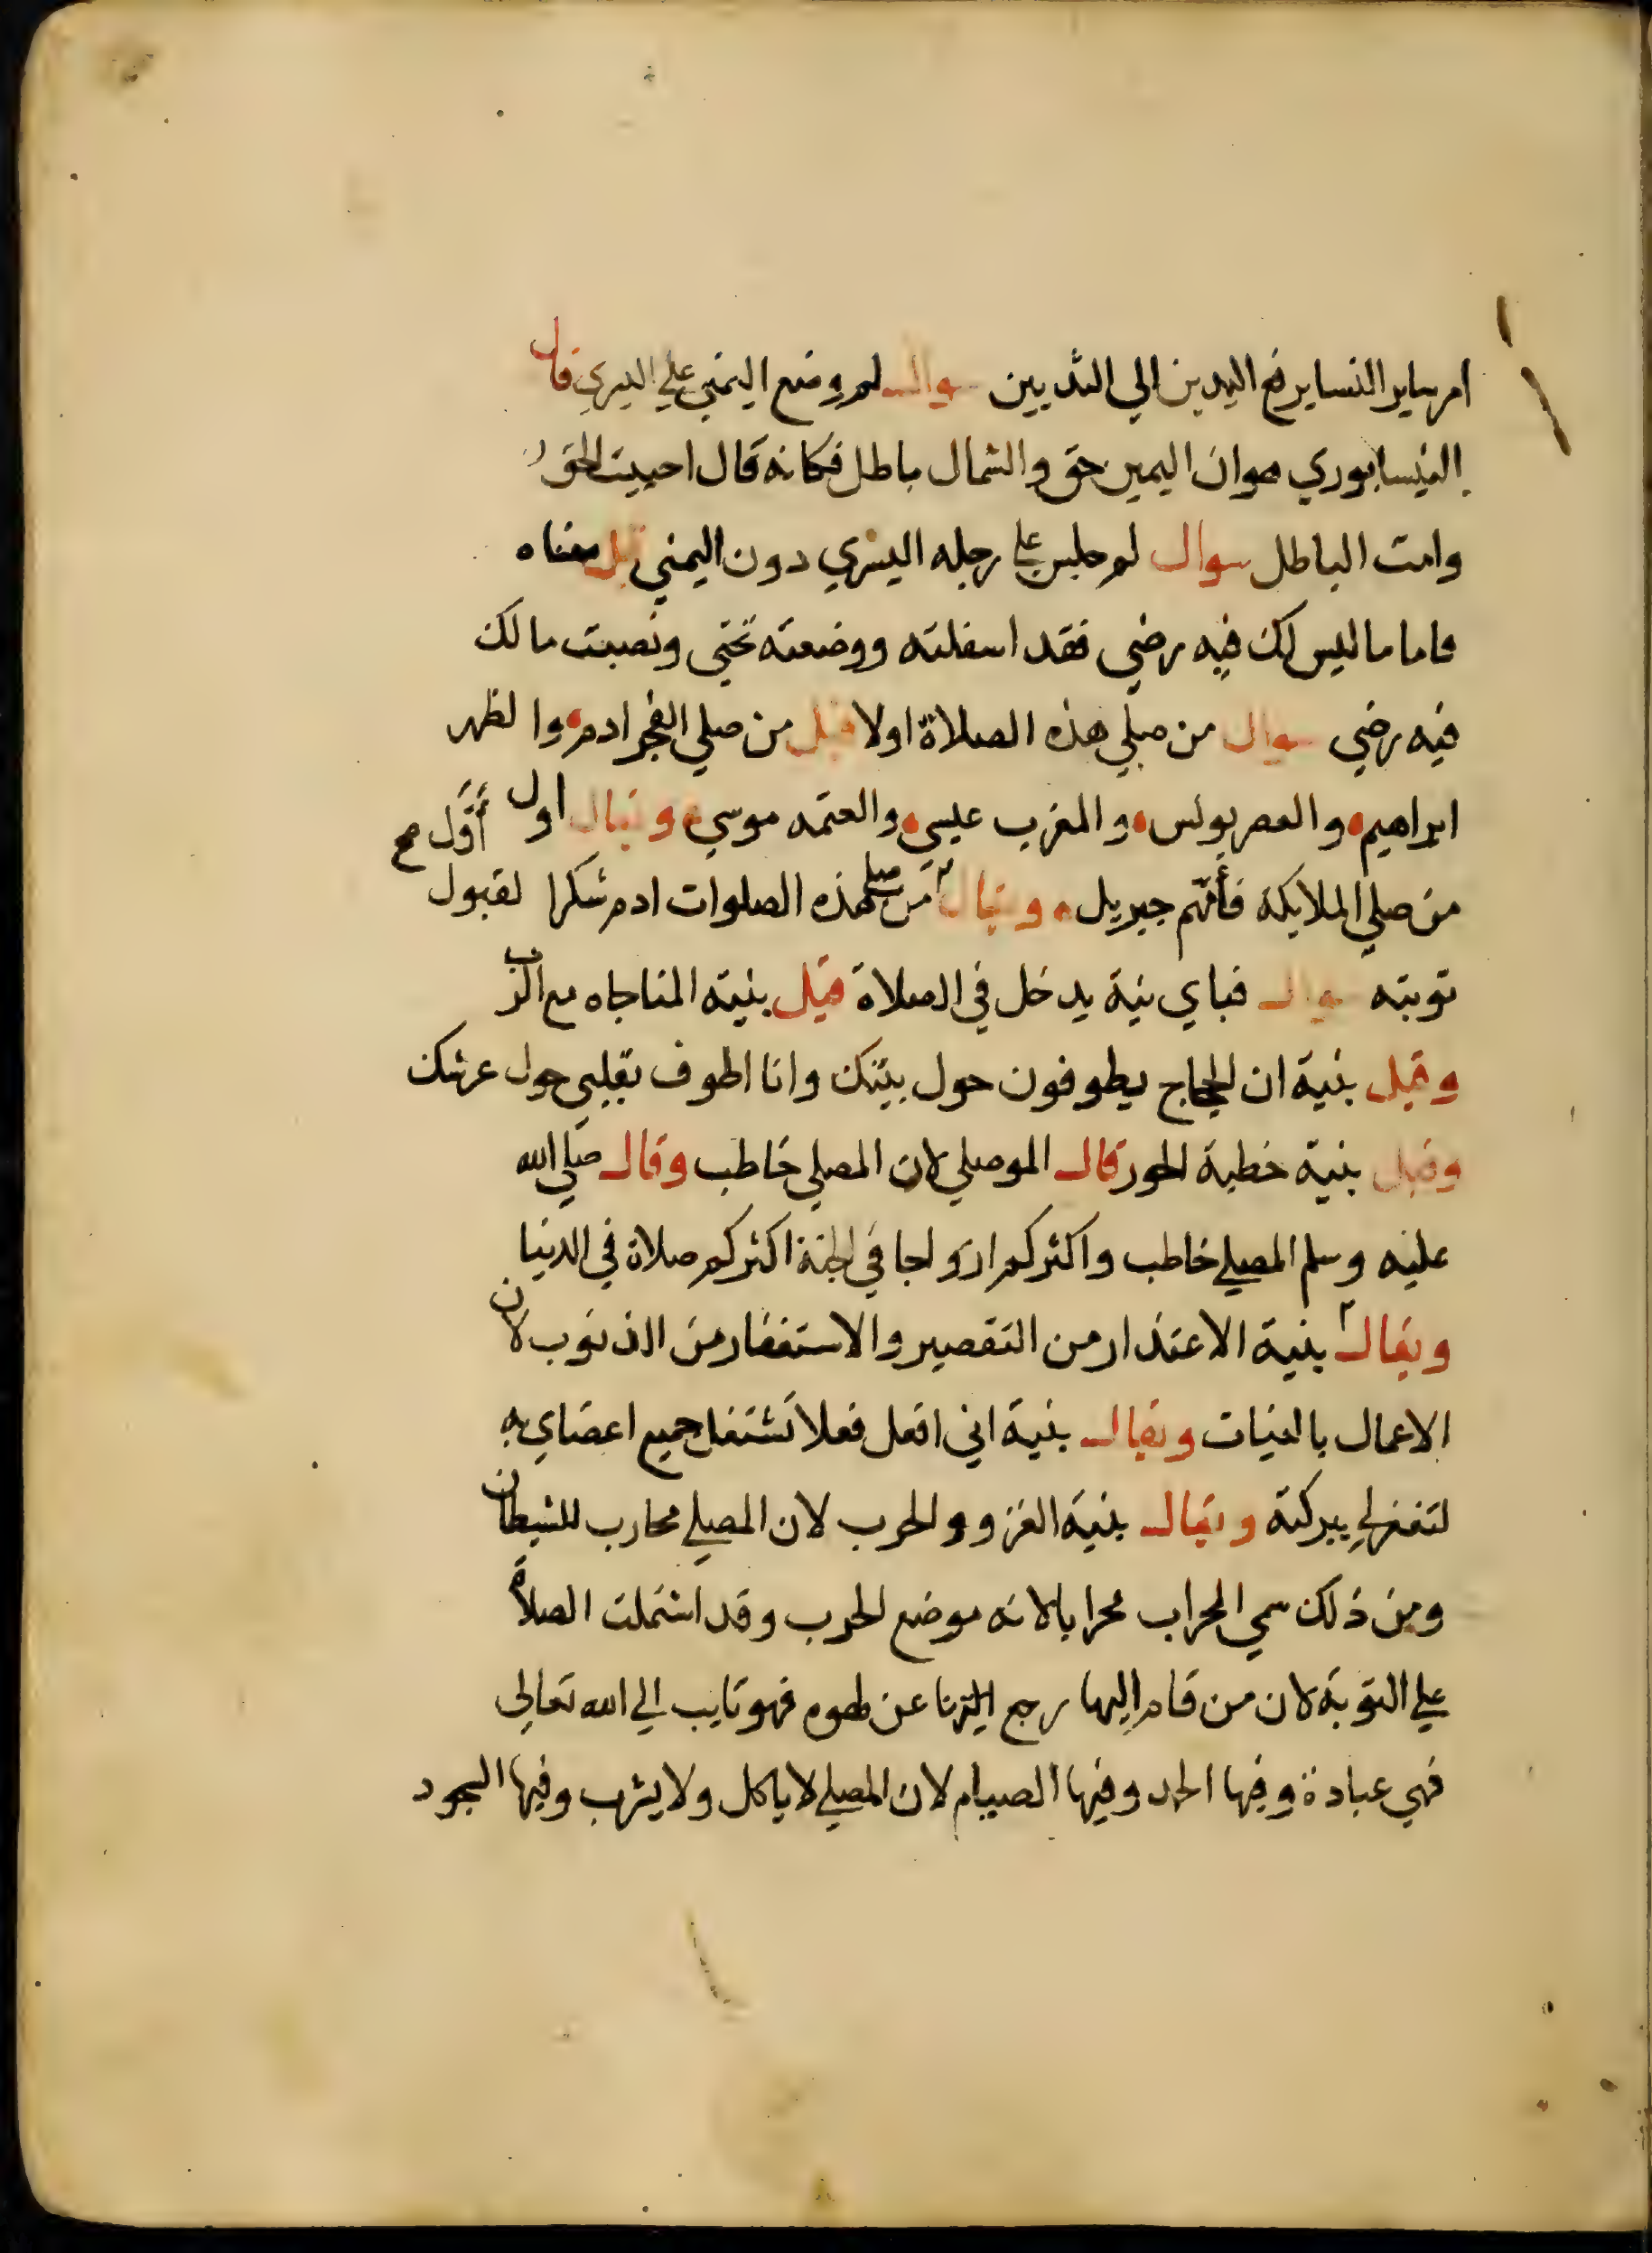 امر ساير النسا يرفع اليدين الي الثديين سوال لم وضع اليمني علي اليسري قال
النيسابوري هو ان اليمين حق والشمال باطل فكانه قال احييت الحق
وامت الباطل سوال لم جلس علي رجله اليسري دون اليمني قيل معناه
فاما ما ليس لك فيه رضي فقد اسفلته ووضعته تحتي ونصبت ما لك
فيه رضي سوال من صلي هذه الصلاة اولا قيل من صلي الفجر ادم والظهر
ابراهيم والعصر يونس والمغرب عيسي والعتمه موسي ويقال اول أوَّل صح
من صلي الملايكة فأمّهم جبريل ويقال من صلي هذه الصلوات ادم شكرا لقبول
توبته سوال فباي نية يدخل في الصلاة قيل بنية المناجاه مع الرب
وقيل بنية ان الحجاج يطوفون حول بيتك وانا اطوف بقلبي حول عرشك
وقيل بنية خطبة الحور قال الموصلي لان المصلي خاطب وقال صلي الله
عليه وسلم المصلي خاطب واكثركم ازواجا في الجنة اكثركم صلاة في الدنيا
ويقال بنية الاعتذار من التقصير والاستغفار من الذنوب لان
الاعمال بالنيات ويقال بنية اني افعل فعلا تشتغل جميع اعضاي به
لتغفر لي ببركته ويقال بنية الغزو والحرب لان المصلي محارب للشيطان
ومن ذلك سمي المحراب محرابا لانه موضع الحرب وقد اشتملت الصلاة
علي التوبة لان من قام اليها رجع عن فهو تايب الي الله تعالي
فهي عبادة وفيها الحمد وفيها الصيام لان المصلي لا ياكل ولا يشرب وفيها السجود